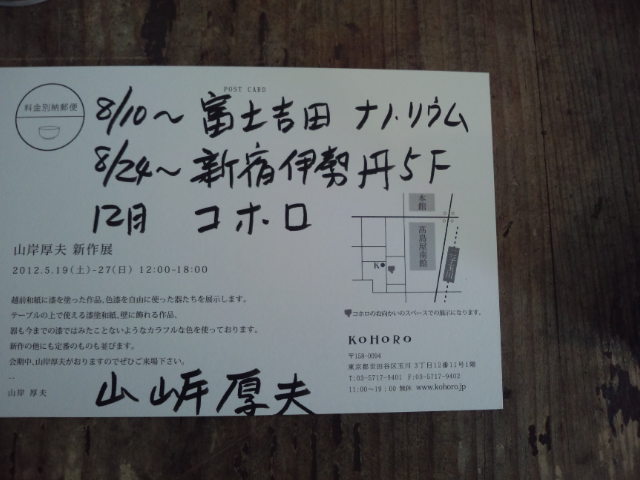 POST CARD
料金別納郵便
8/10～ 富士吉田 ナノリウム
8/24～ 新宿伊勢丹5F
12月 コホロ
山岸厚夫 新作展
2012.5.19(土)-27(日) 12:00-18:00
越前和紙に漆を塗った作品、色漆を自由に使った器たちを展示します。
テーブルの上で使える漆塗和紙、壁に飾れる作品、
器も今までの漆ではみたことないようなカラフルな色を使っております。
新作の他にも定番のものも並びます。
会期中、山岸厚夫がおりますのでぜひご来場下さい。
山岸 厚夫
山岸厚夫
本館
高島屋南館
二子玉川
K
コホロのお向かいのスペースでの展示になります。
KOHORO
〒158-0094
東京都世田谷区玉川3丁目12番11号1階
T:03-5717-9401 F:03-5717-9402
11:00～19:00 無休 www.kohoro.jp